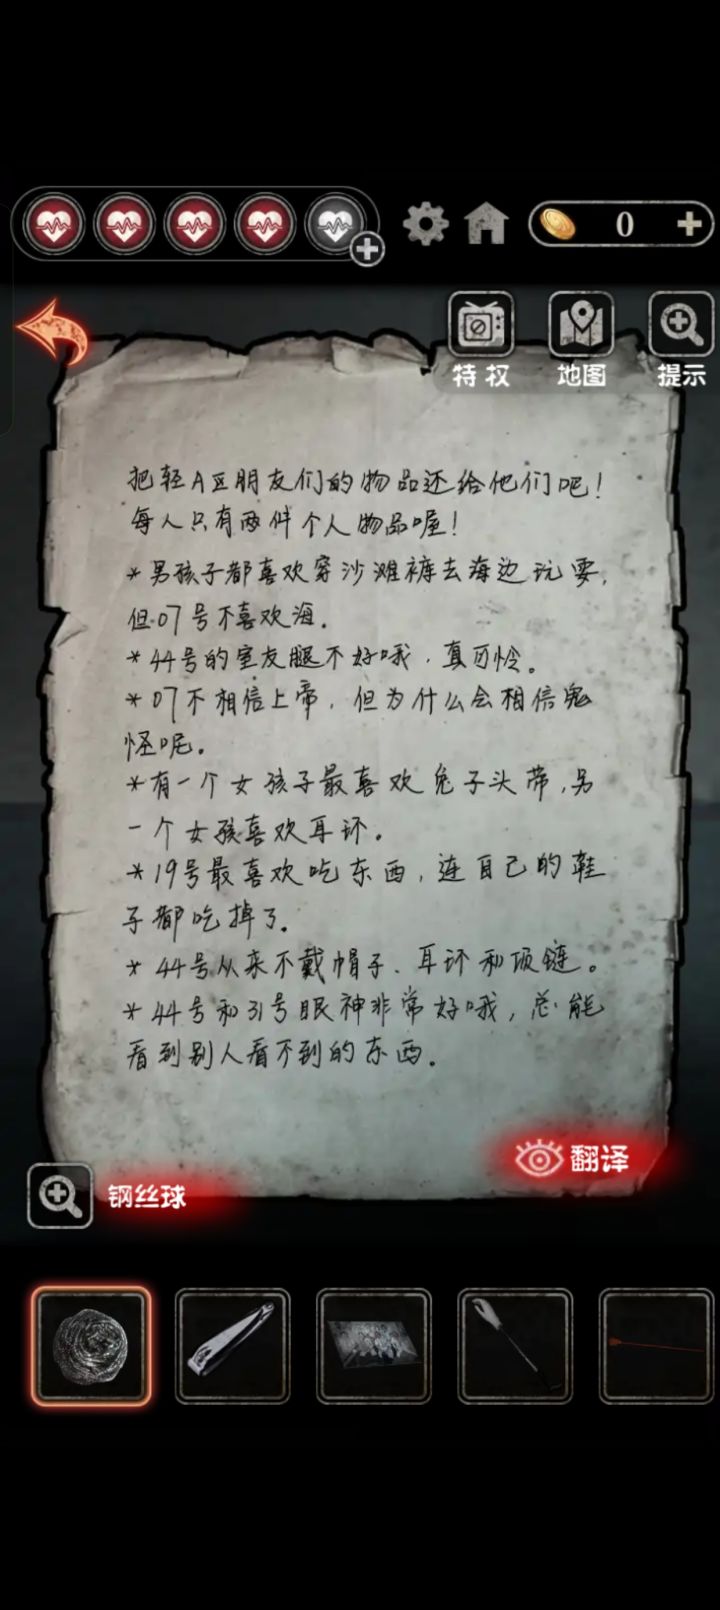 0
特权
地图
提示
把轻A区朋友们的物品还给他们吧！
每人只有两件个人物品喔！
*男孩子都喜欢穿沙滩裤去海边玩耍,
但07号不喜欢海.
*44号的室友腿不好哦,真可怜。
*07不相信上帝,但为什么会相信鬼
怪呢。
*有一个女孩子最喜欢兔子头带,另
一个女孩喜欢耳环。
*19号最喜欢吃东西,连自己的鞋
子都吃掉了。
*44号从来不戴帽子、耳环和项链。
*44号和31号眼神非常好哦,总能
看到别人看不到的东西.
翻译
钢丝球